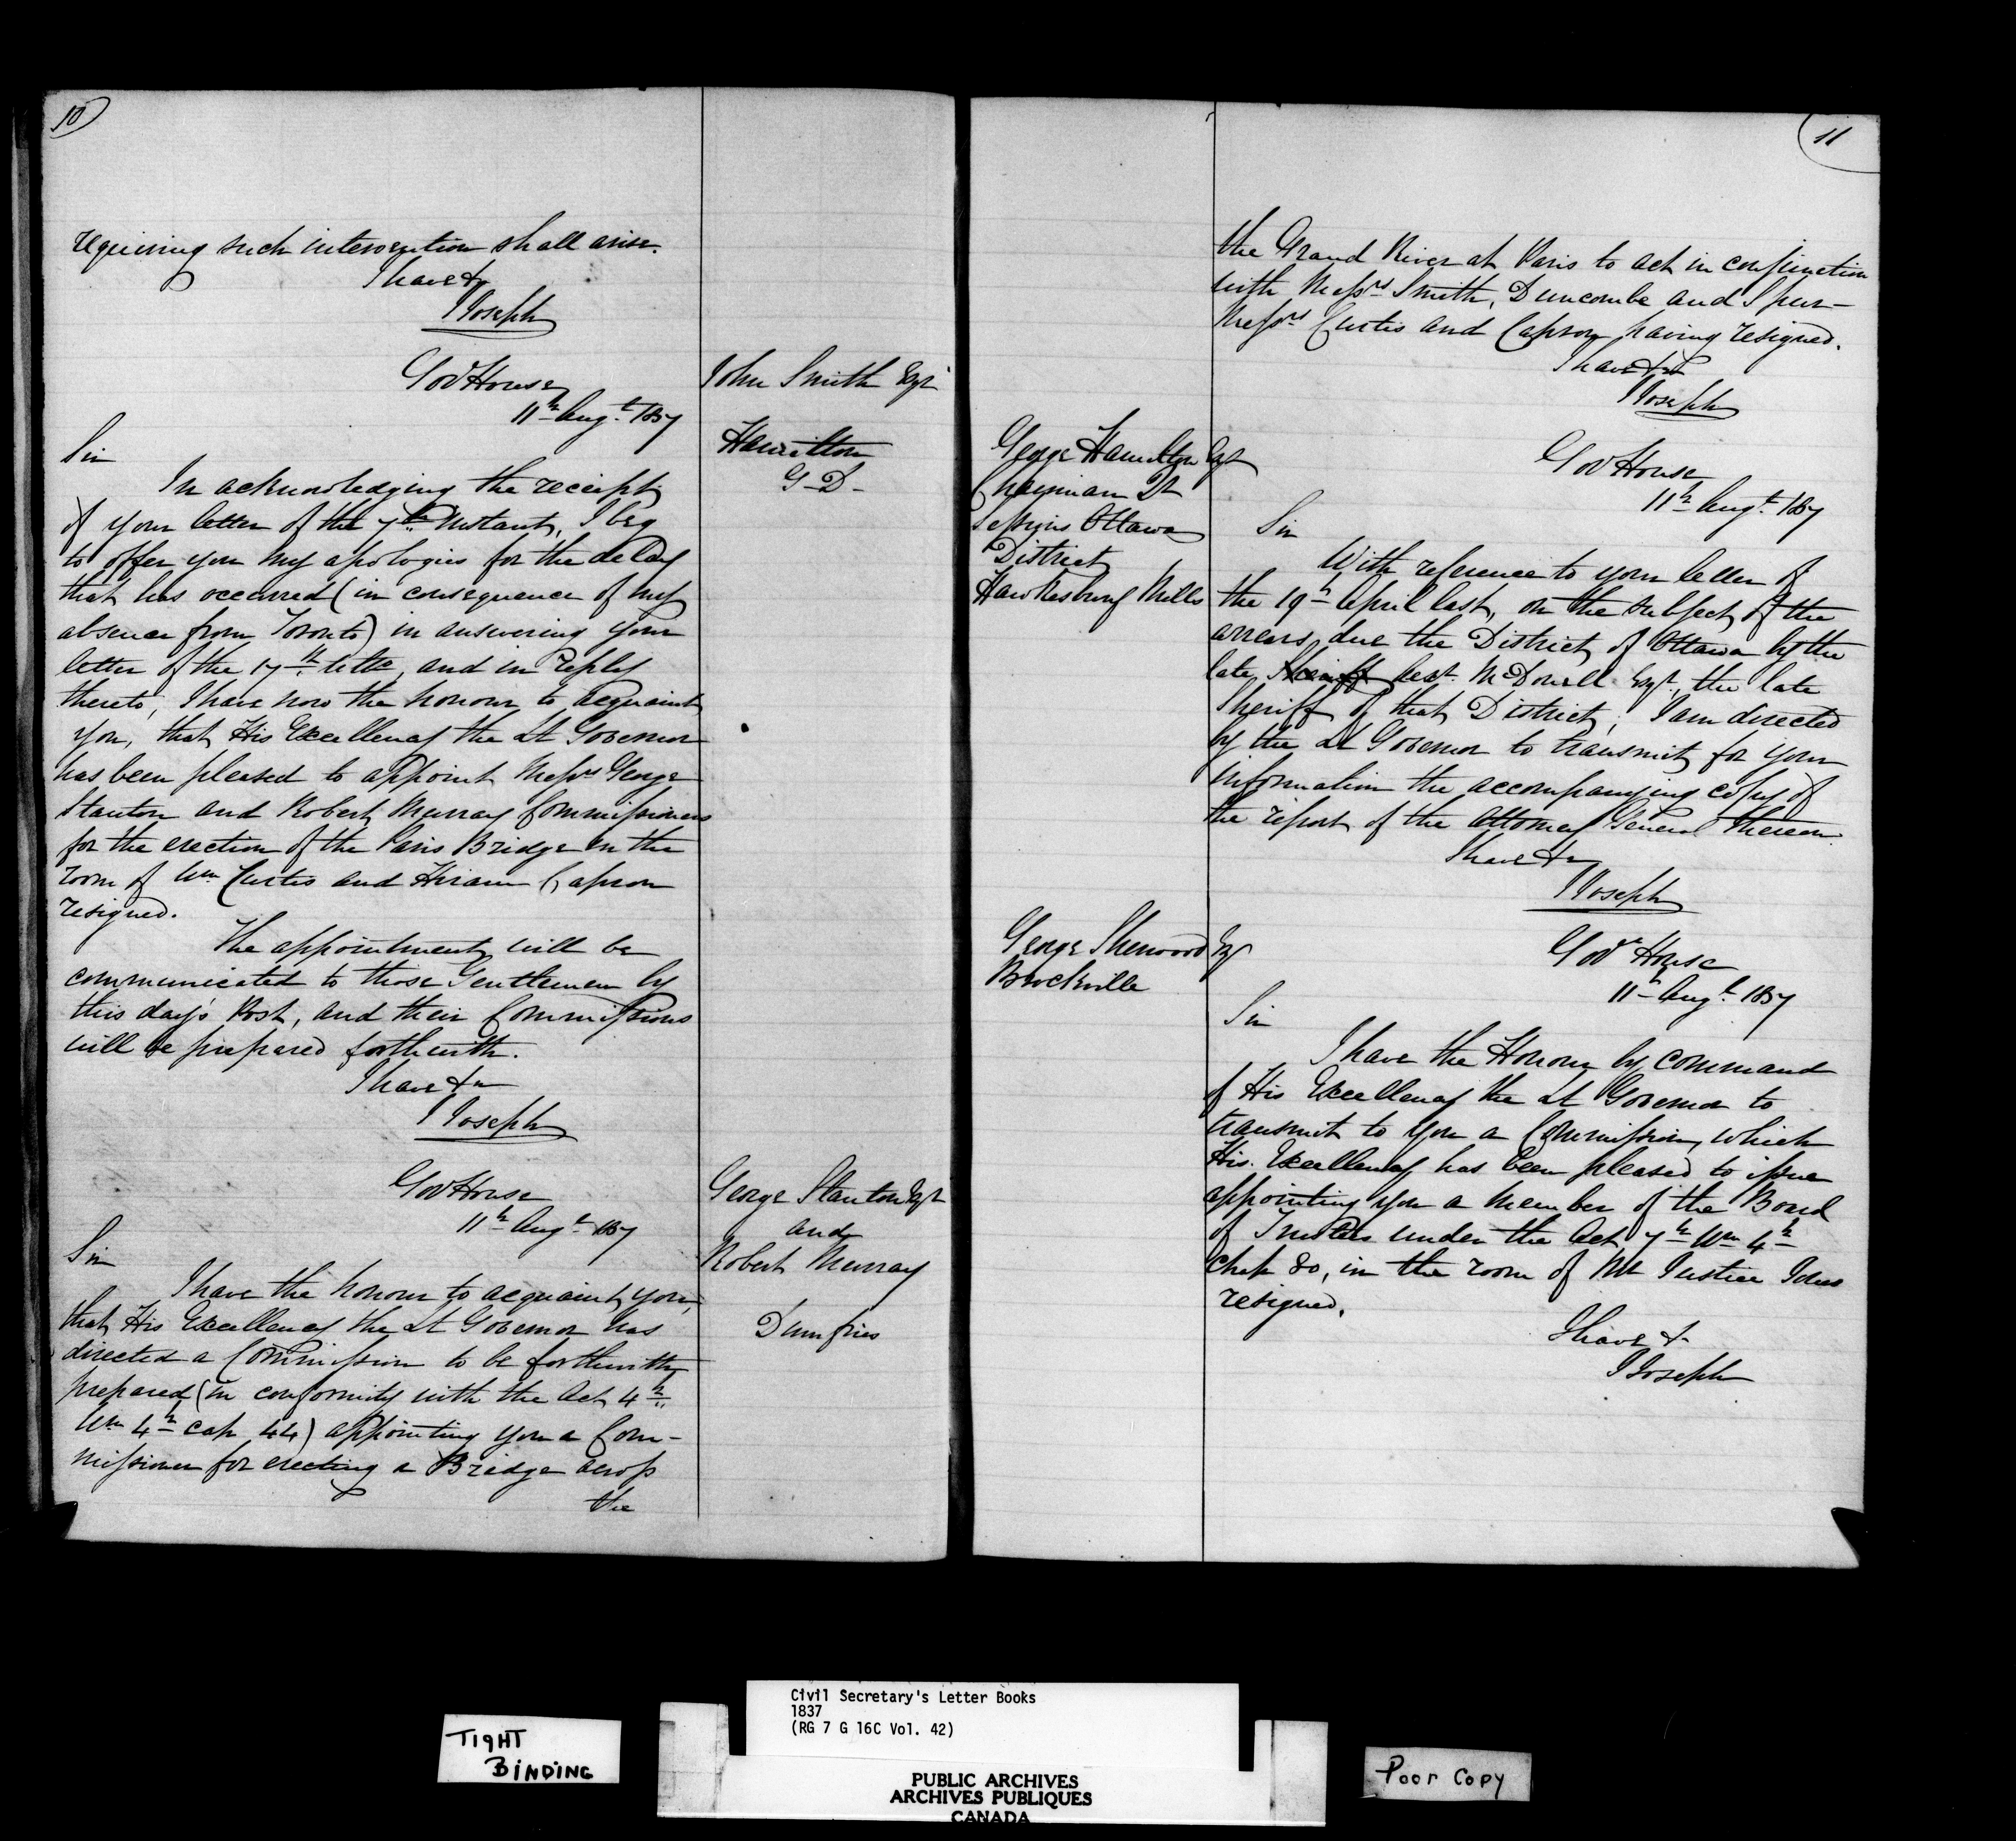 10
requiring such intervention shall arise.
I have &c
J Joseph
Gov House
11th Augt. 1837
John Smith Esqr
Hamilton
G-D-
Sir
In acknowledging the receipt
of your letter of the 7th Instant, I beg
to offer you my apologies for the delay
that has occurred (in consequence of my
absence from Toronto) in answering your
letter of the 17th ulto, and in reply
thereto, I have now the honour to acquaint
you, that His Excellency the Lt Governor
has been pleased to appoint Messrs George
Stanton and Robert Murray Commissioners
for the erection of the Paris Bridge in the
room of Wm Curtis and Hiram Capron
resigned.
The appointment will be
communicated to those Gentlemen by
this day's Post, and their Commissions
will be prepared forthwith.
I have &c
J Joseph
Gov House
11th Augt 1837
George Stanton Esqr
and
Robert Murray
Dumfries
Sir
I have the honour to acquaint you,
that His Excellency the Lt Governor has
directed a Commission to be forthwith
prepared (in conformity with the Act 4th
Wm 4th cap 44) appointing you a Com-
missioner for erecting a Bridge across
the
11
the Grand River at Paris to act in conjunction
with Messrs Smith, Duncombe and Spur-
Messrs Curtis and Capron having resigned.
I have &c
J Joseph
George Hamilton Esqr
Chairman Qr
Sessions Ottawa
District
Hawkesbury Mills
Gov House
11th Augt 1837
Sir
With reference to your letter of
the 19th April last, on the subject of the
arrears due the District of Ottawa by the
late Sheriff McDonell Esqr, the late
Sheriff of that District, I am directed
by the Lt Governor to transmit for your
information the accompanying copy of
the report of the Attorney General thereon.
I have &c
J Joseph
George Sherwood Esqr
Brockville
Govr House
11th Augt 1837
Sir
I have the Honour by command
of His Excellency the Lt Governor to
transmit to you a Commission, which
His Excellency has been pleased to issue
appointing you a member of the Board
of Trustees under the Act 7th Wm 4th
Chap 80, in the room of Mr Justice Jones
resigned.
I have &
J Joseph
TIGHT
BINDING
Civil Secretary's Letter Books
1837
(RG 7 G 16C Vol. 42)
PUBLIC ARCHIVES
ARCHIVES PUBLIQUES
CANADA
Poor Copy